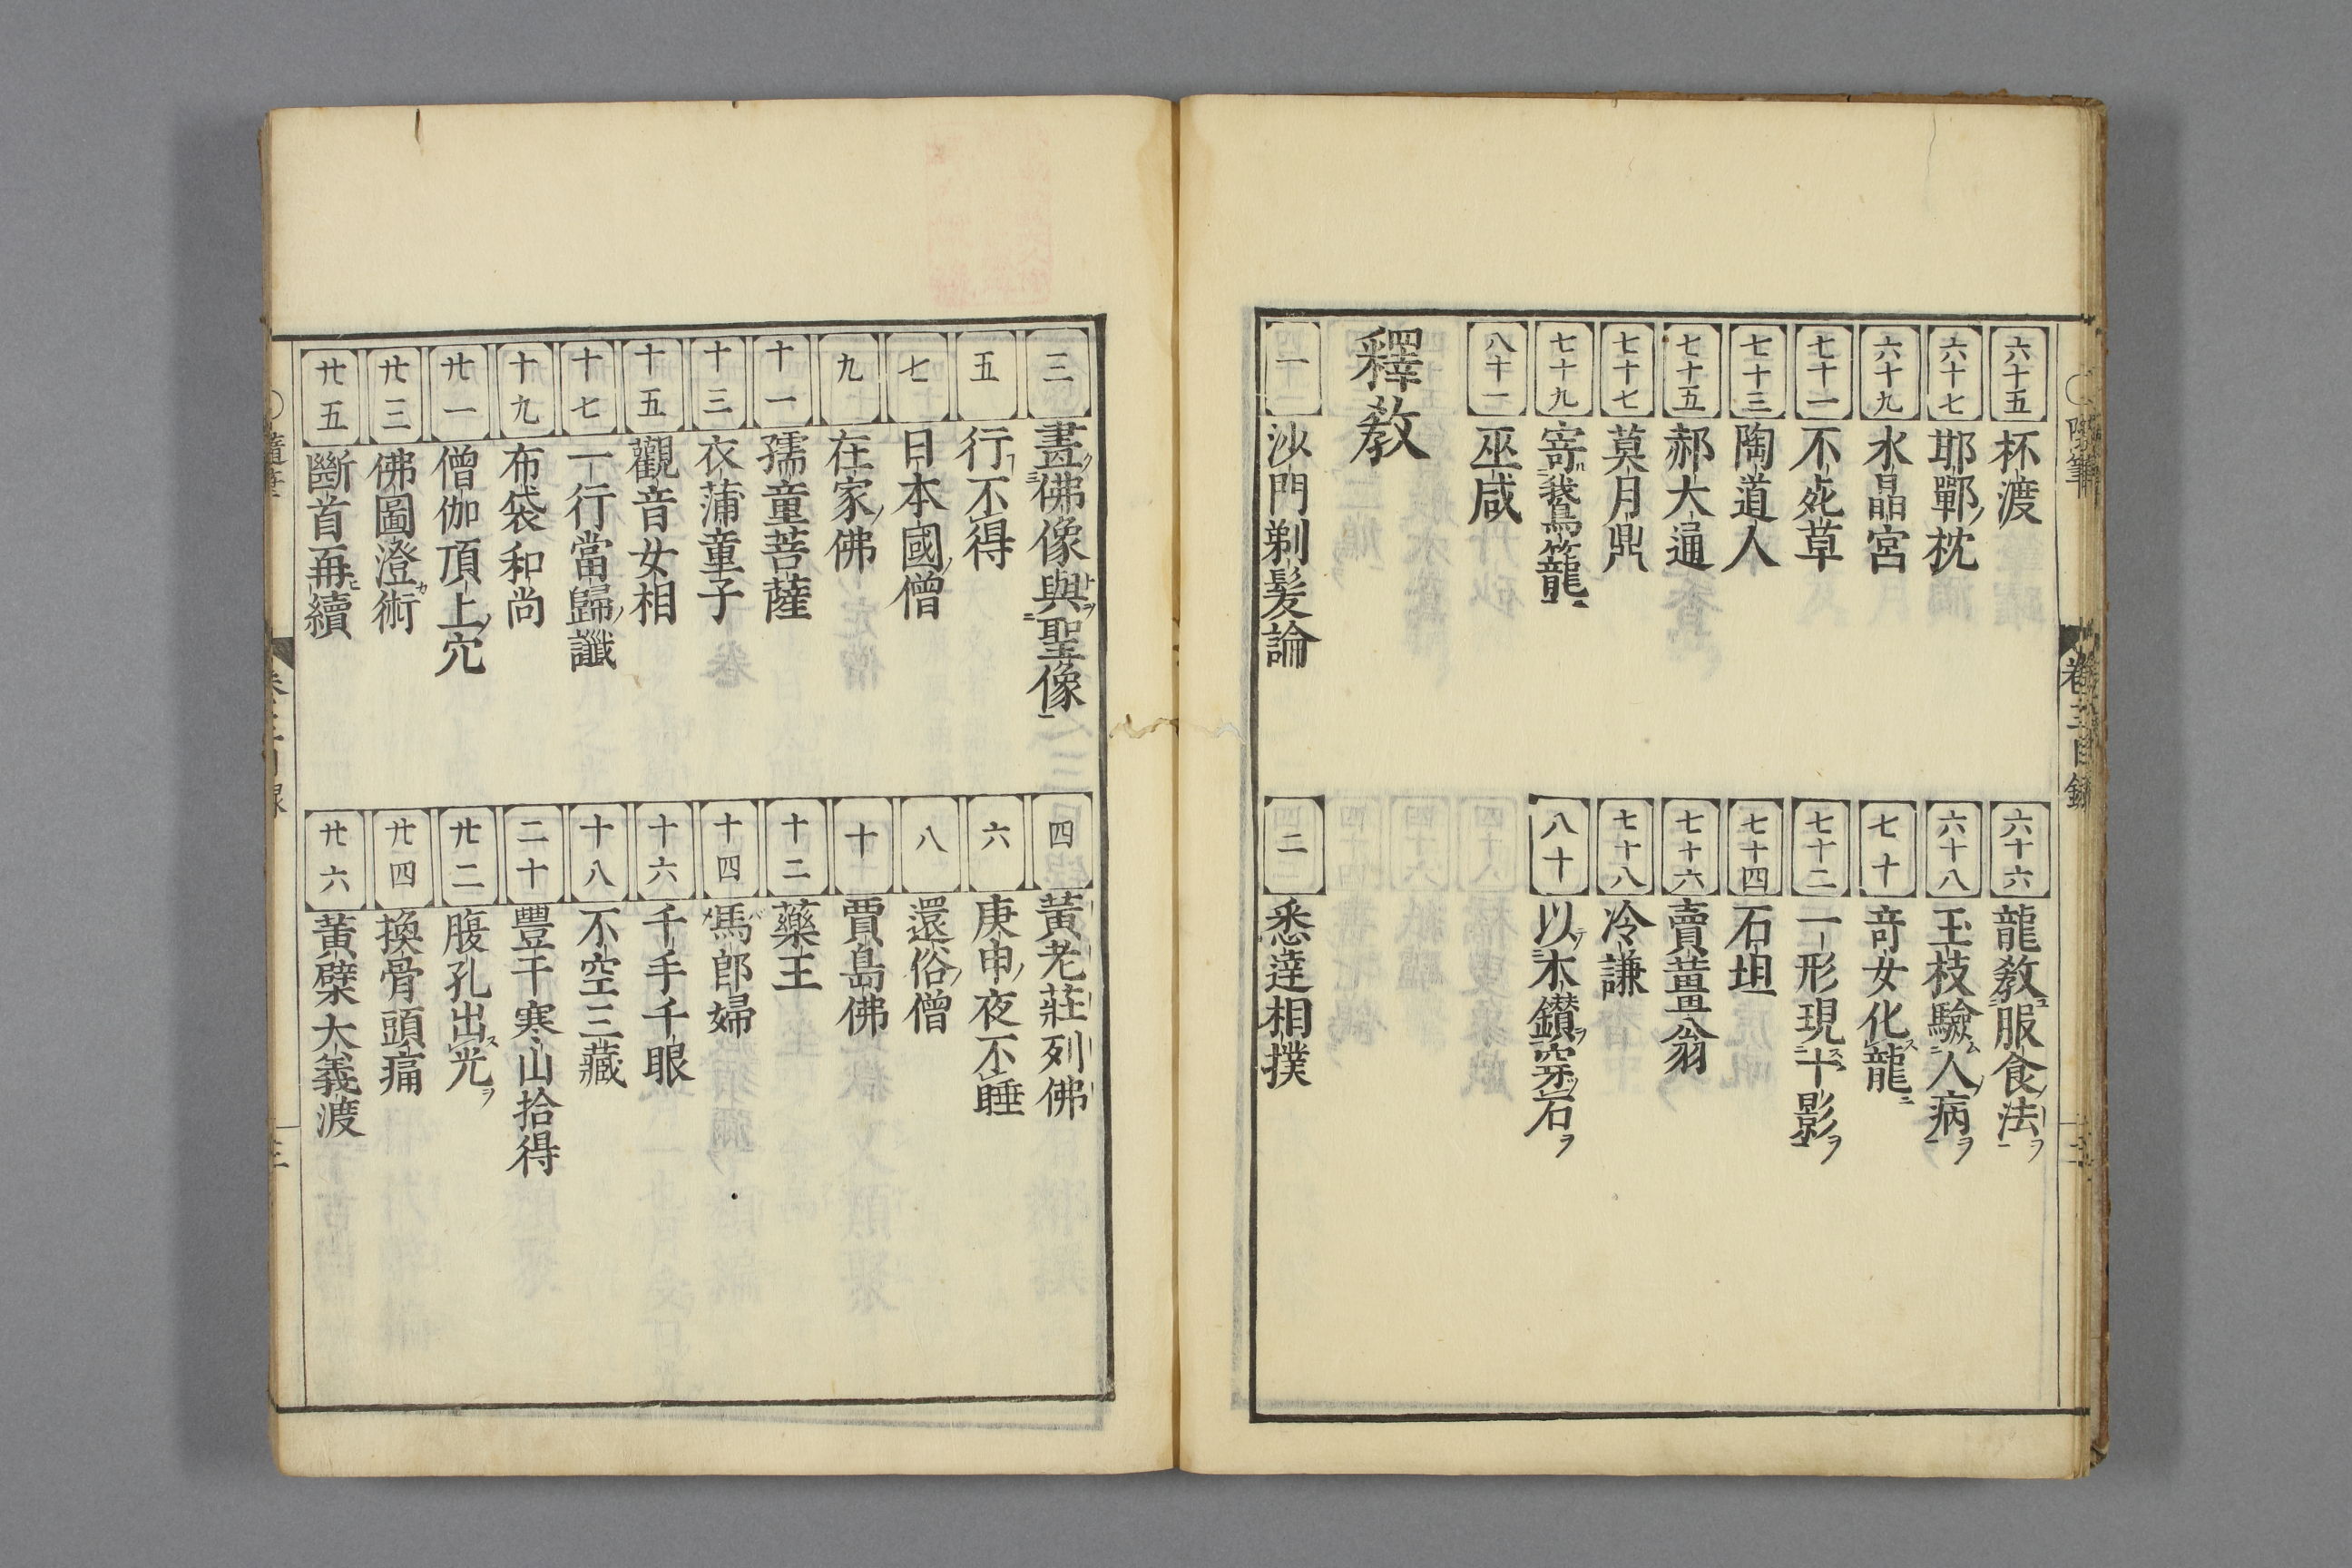 六十五 杯渡
六十六 龍教服食法ヲ
六十七 耶鄲ノ枕
六十八 玉枝驗人ノ病ヲ
六十九 水晶宮
七十 竒女化龍ニ
七十一 不死草
七十二 一形現十影ヲ
七十三 陶道人
七十四 石坦
七十五 郝大通
七十六 賣薑翁
七十七 莫月鼎
七十八 冷謙
七十九 寄鵞籠
八十 以木鑚穿石ヲ
八十一 巫咸
釋教
一 沙門剃髪論
二 悉達相撲
三 畫佛像與聖像
四 黃老莊列佛
五 行不得
六 庚申ノ夜不睡
七 日本國ノ僧
八 還俗ノ僧
九 在家ノ佛
十 賈島佛
十一 孺童菩薩
十二 藥王
十三 衣蒲童子
十四 馬郎婦
十五 觀音女相
十六 千手千眼
十七 一行當歸ノ讖
十八 不空三藏
十九 布袋和尚
二十 豐干寒山拾得
廿一 僧伽頂上ノ穴
廿二 腹孔出光ヲ
廿三 佛圖澄カ術
廿四 換骨頭痛
廿五 斷首再ヒ續
廿六 黃檗大義渡